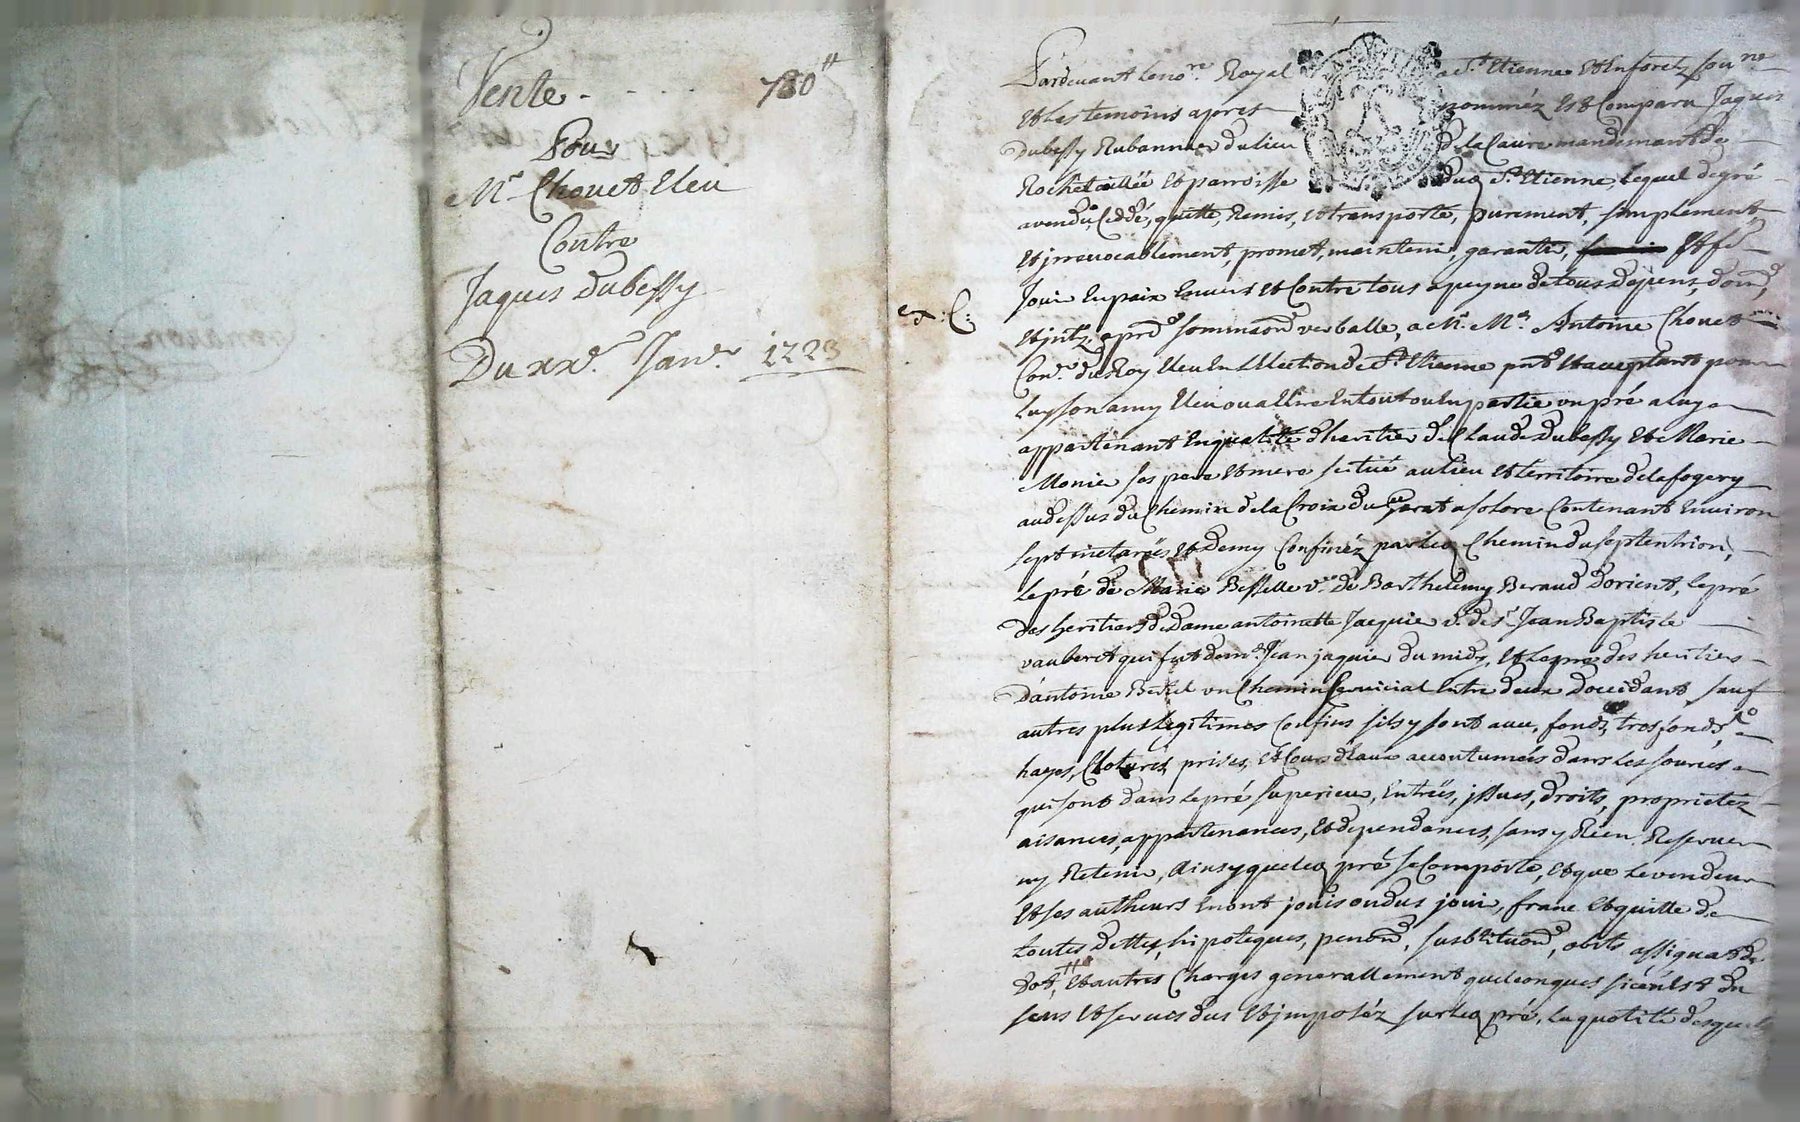 Vente . . . . 780ᵗᵗ
Pour
Mʳ Chouet Eleu
Contre
Jaques Dubessy
Du xxᵉ. Janᵛ. 1723
ex: C:
Pardevant le noʳᵉ. Royal a Sᵗ. Etienne Et En foretz sou nᵉ
Et Les temoins apres nomméz Est Comparu Jaques
Dubessy Rubannier du lieu de la mandemant de
Rochetaillée et parroisse dud Sᵗ. Etienne, Lequel de gré
a vendu, Ceddé, quitte, Remis, et transporte, purement, simplement
Et jrrevocablement, promet, maintenir, garantir, Et fᵉ
Jouir En paix Envers et Contre tous a peyne de tous depens, domᵉ
Et jntz. aprᵉ sommaonᵉ verballe, a Mʳ. Mᵉ. Antoine Chouet
Conᵉʳ du Roy Eleu En L'Election de Sᵗ. Etienne pntᵉ Et acceptant pour
Luy son amy Eleu ou a Elire En tout ou En partie un pré a luy
appartenant En qualité d'heritier de Claude Dubessy Et Marie
Monier ses pere et mere scitué au lieu et territoire de la fogery
au dessus du Chemin de la Croix du a Solore Contenant Environ
sept metarées Et Demy Confinéz par led Chemin du septentrion,
Le pré de Marie Bessette vᵉ. de Barthelemy Beraud d'orient, le pré
des heritiers de Dame antoinette Jacquier vᵉ. de sʳ. Jean Baptiste
vauberet qui fut de mᵉ. Jean jaquier du midy, Et Le pré des heritiers
D'antoine un Chemin servicial Entre deux d'occidant, sauf
autres plus legitimes Confins sils y sont avec, fondz, tresfondz,
hayes, Clotures, prises, Et Cours d'eaux accoutumées dans Les sources
qui sont dans Le pré superieur, Entrées, jssues, droits, proprietéz
aisances, appartenances, Et dependances, sans y Rien Reserver
ny Retenir, Ainsy que led pré se Comporte, Et que Le vendeur
Et ses autheurs En ont joui ou dus jouir, franc Et quitte de
toutes dettes, hipoteques, penonᵉ, substituonᵉ, obits assignat de
dot, Et autres Charges generallement quelconques si ce n'Est du
sens Et servis dus Et jmposéz sur led pré, La quotité desquels